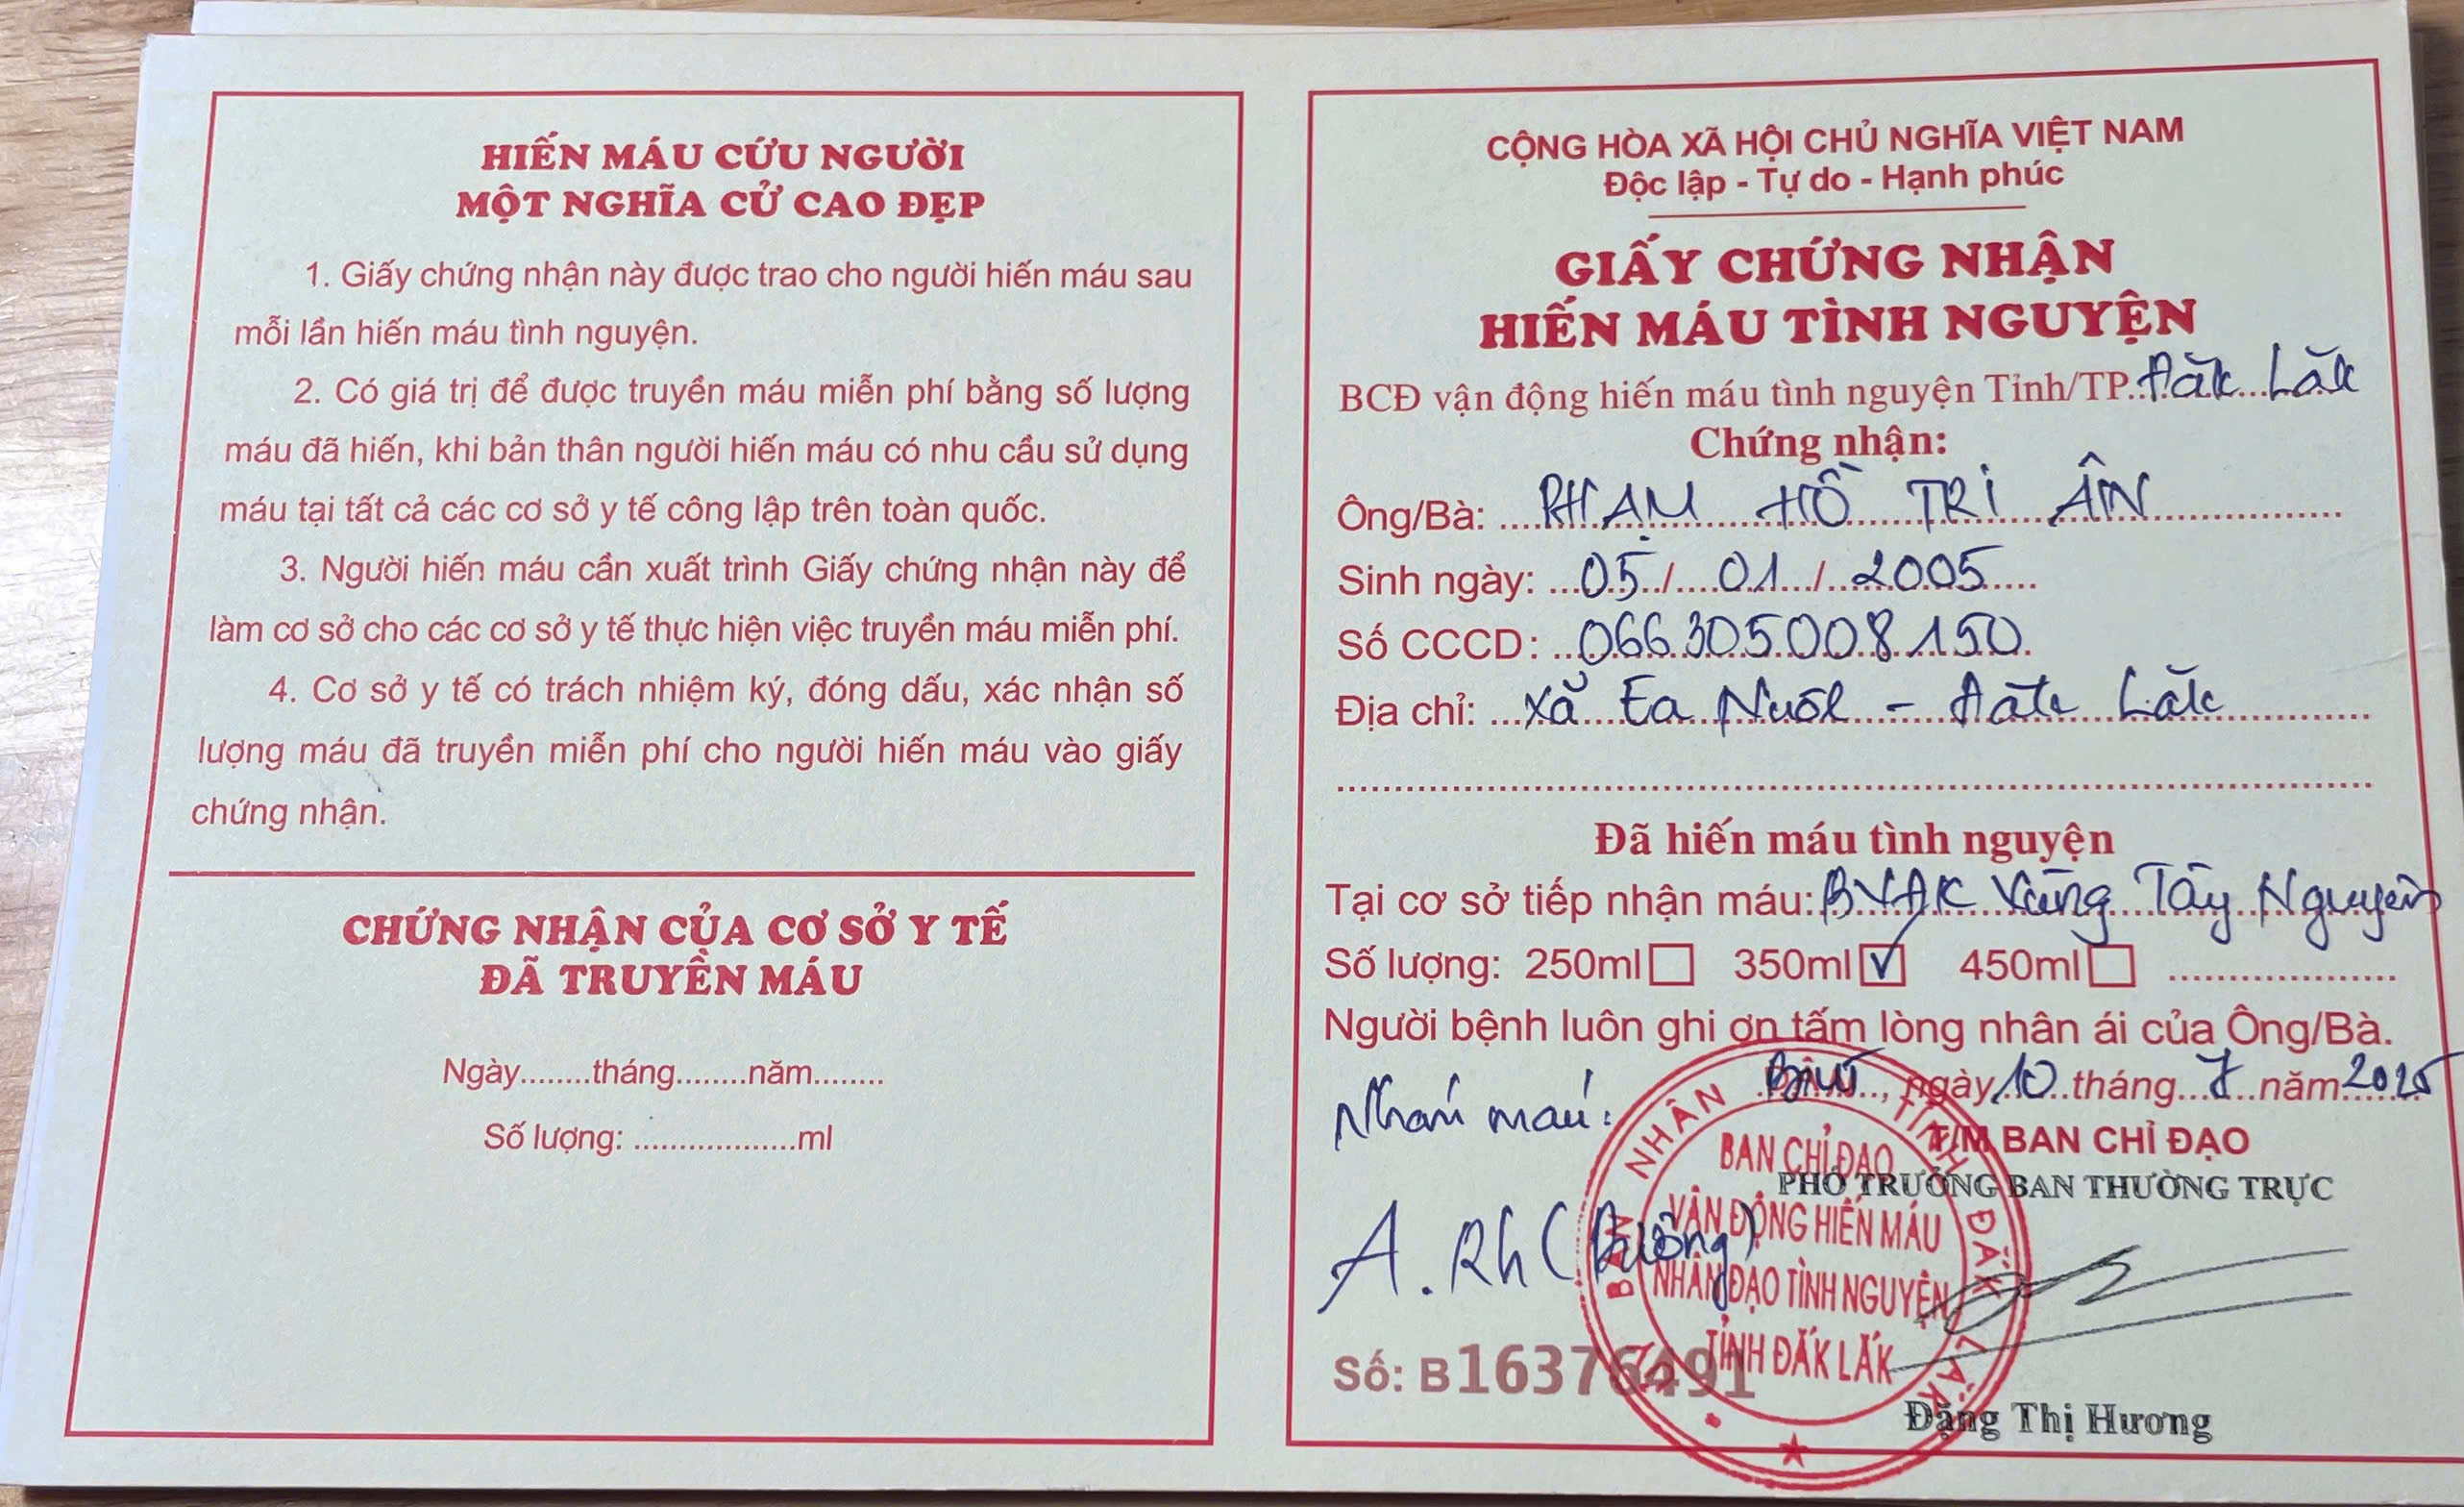 HIẾN MÁU CỨU NGƯỜI
MỘT NGHĨA CỬ CAO ĐẸP
1. Giấy chứng nhận này được trao cho người hiến máu sau
mỗi lần hiến máu tình nguyện.
2. Có giá trị để được truyền máu miễn phí bằng số lượng
máu đã hiến, khi bản thân người hiến máu có nhu cầu sử dụng
máu tại tất cả các cơ sở y tế công lập trên toàn quốc.
3. Người hiến máu cần xuất trình Giấy chứng nhận này để
làm cơ sở cho các cơ sở y tế thực hiện việc truyền máu miễn phí.
4. Cơ sở y tế có trách nhiệm ký, đóng dấu, xác nhận số
lượng máu đã truyền miễn phí cho người hiến máu vào giấy
chứng nhận.
CHỨNG NHẬN CỦA CƠ SỞ Y TẾ
ĐÃ TRUYỀN MÁU
Ngày........tháng........năm........
Số lượng: ..................ml
CỘNG HÒA XÃ HỘI CHỦ NGHĨA VIỆT NAM
Độc lập - Tự do - Hạnh phúc
GIẤY CHỨNG NHẬN
HIẾN MÁU TÌNH NGUYỆN
BCĐ vận động hiến máu tình nguyện Tỉnh/TP. Đăk Lăk
Chứng nhận:
Ông/Bà: PHẠM HỒ TRI ÂN
Sinh ngày: 05 / 01 / 2005
Số CCCD: 066305008150
Địa chỉ: Xã Ea Nuôl - Đăk Lăk
Đã hiến máu tình nguyện
Tại cơ sở tiếp nhận máu: BVĐK Vùng Tây Nguyên
Số lượng: 250ml 350ml ✓ 450ml
Người bệnh luôn ghi ơn tấm lòng nhân ái của Ông/Bà.
ngày 10 tháng 7 năm 2025
Nhóm máu:
T/M BAN CHỈ ĐẠO
PHÓ TRƯỞNG BAN THƯỜNG TRỰC
A. Rh (Dương)
BAN CHỈ ĐẠO
VẬN ĐỘNG HIẾN MÁU
NHÂN ĐẠO TÌNH NGUYỆN
TỈNH ĐẮK LẮK
NHÂN
TỈNH ĐẮK LẮK
Số: B16376491
Đặng Thị Hương